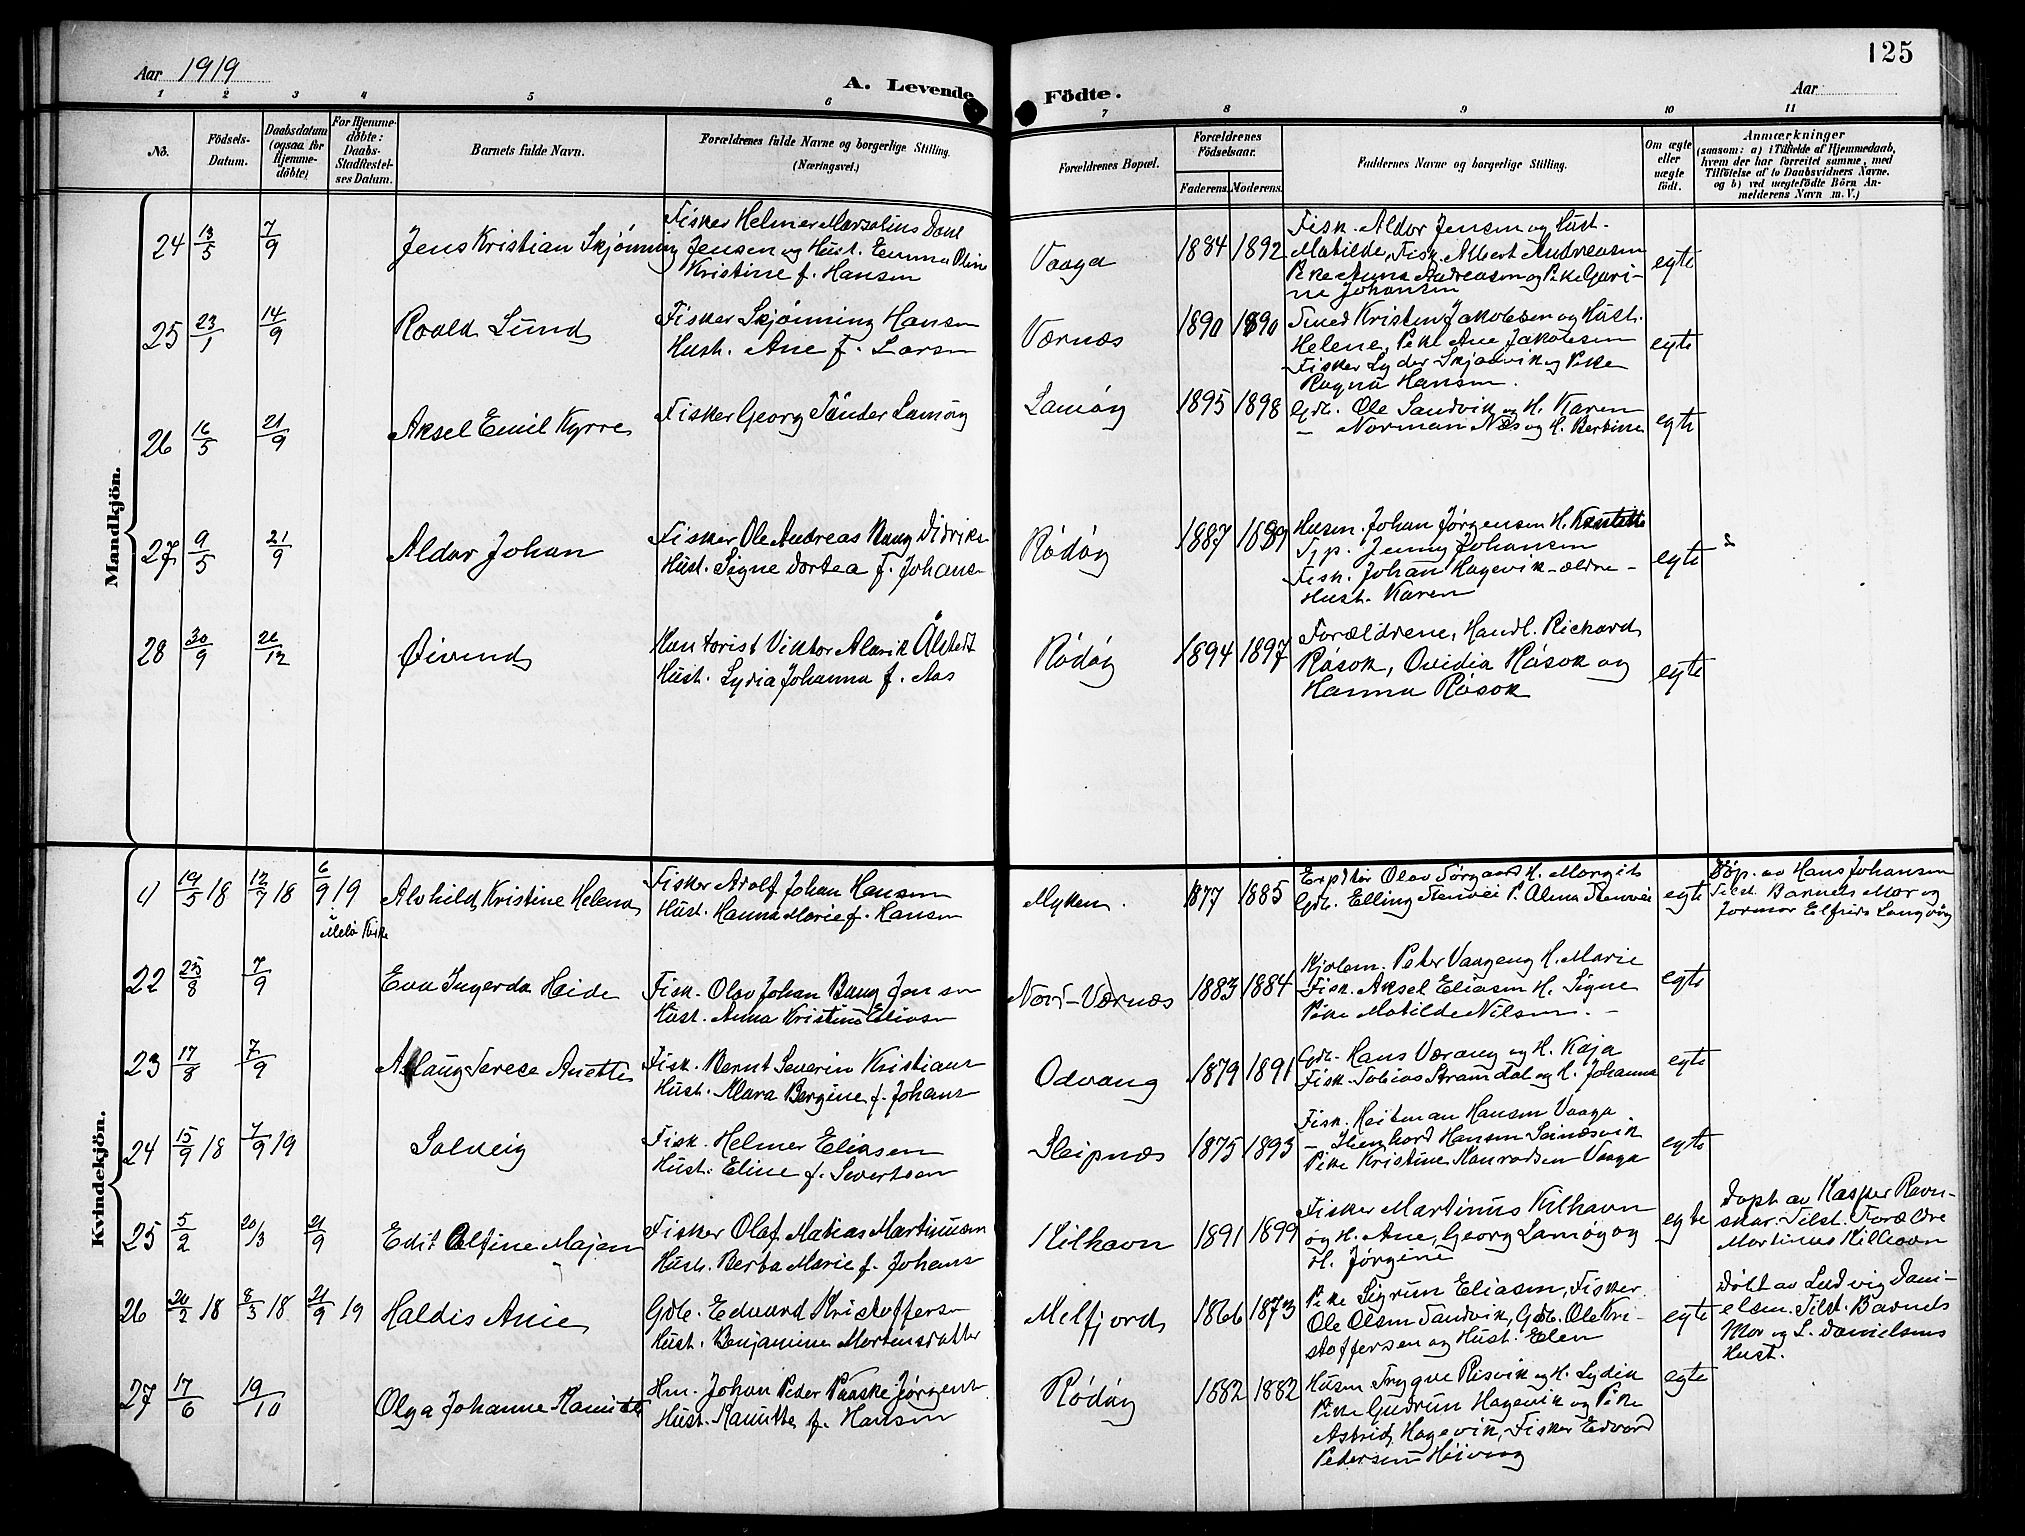 125
Aar 1919
A. Levende
Födte.
Aar
1 2 3 4 5 6 7 8 9 10 11
No.
Födsels-
Datum.
Daabsdatum
(ogsaa for
Hjemme-
döbte)
For Hjemme-
döbte:
Daabs-
Stadfæstel-
ses Datum.
Barnets fulde Navn.
Forældrenes fulde Navne og borgerlige Stilling.
(Næringsvei.)
Forældrenes Bopæl.
Forældrenes
Fødselsaar.
Faderens. Moderens.
Faddernes Navne og borgerlige Stilling.
Om ægte
eller
uægte
født.
Anmærkninger
(saasom: a) i Tilfælde af Hjemmedaab,
hvem der har forrettet samme, med
Tilföielse af to Daabsvidners Navne,
og b) ved uægtefödte Börn An-
melderens Navn m. V.)
Mandkjön.
24 13/5 7/9
Jens Kristian Skjønning
Fisker Helmer Marselius Dahl
Jensen og Hust. Emma Oline
Kristine f. Hansen
Vaaga
1884 1892
Fisk. Aldor Jensen og Hust.
Matilde, Fisk. Albert Andreasen
Pike Anna Andreasen og Pike Guri-
ne Johansen
egte
25 23/1 14/9
Roald Lund
Fisker Skjønning Hansen
Hust. Ane f. Larsen
Værnes
1890 1890
Smed Kristen Jakobsen og Hust.
Helene, Pike Ane Jakobsen
Fisker Lyder Skjelvik og Pike
Ragna Hansen.
egte
26 16/5 21/9
Aksel Emil Kyrre
Fisker Georg Tönder Lamøy
Lamøy
1895 1898
Gdb. Ole Sandvik og H. Karen
– Norman Næs og H. Berbine
egte
27 9/5 21/9
Aldor Johan
Fisker Ole Andreas Baag Didriks
Hust. Signe Dortea f. Johans
Rödöy
1887 1889
Husm. Johan Jørgensen H.
Tjp. Jenny Johansen
Fisk. Johan Hagevik – ældre –
Hust. Karen
egte
28 30/9 26/12
Øivind
Kontorist Viktor Alarik Ålstedt
Hust. Lydia Johanna f. Aas
Rödöy
1894 1897
Forældrene, Handl. Richard
Råsok, Ovidia Råsok og
Hanna Råsok
egte
Kvindekjön.
4 19/5 18 12/7 18 6/9 19
i
Melö Kirke
Alvhild Kristine Helena
Fisker Adolf Johan Hansen
Hust. Hanna Marie f. Hansen
Myken.
1877 1885
Olav Sørgaard H. Margit
Gdb. Elling Stenvei P. Alma Stenvei
egte
Döp. av Hans Johansen
Tilst. Barnets Mor og
Jormor Elfrida Langvåg
22 25/8 7/9
Eva Ingerda Heide
Fisk. Olav Johan Baag Jensen
Hust. Anna Kristine Eliasen
Nord-Værnes
1883 1884
Peter Vaageng H. Marie
Fisk. Aksel Eliasen H. Signe
Pike Matilde Nilsen. –
egte
23 17/8 7/9
Aslaug Terese Anette
Fisk. Bernt Severin Kristians
Hust. Mara Bergine f. Johans
Odvang
1879 1891
Gdb. Hans Værang og H. Kaja
Fisk. Tobias Strømdal og H. Johanna
egte
24 15/9 18 7/9 19
Solveig
Fisk. Helmer Eliasen
Hust. Eline f. Sivertsen
Sleipnes
1875 1893
Fisk. Heitman Hansen Vaaga
– Hansen Seinesvik
Pike Kristine Konradsen Vaaga
egte
25 5/2 20/3 21/9
Edit Alfine Majan
Fisker Olaf Matias Martinusen
Hust. Berta Marie f. Johans
Kilhavn
1891 1899
Fisker Martinus Kilhavn
og H. Ane, Georg Lamøy og
H. Jørgine
egte
Døpt av Kasper Ravn-
skar. Tilst. Forældre
Martinus Kilhavn
26 20/2 18 8/3 18 21/9 19
Haldis Anie
Gdb. Edvard Kristoffersen
Hust. Benjamine Mortensdatter
Melfjord
1866 1873
Pike Sigrun Eliasen, Fisker
Ole Olsen Sandvik, Gdb. Ole Kri-
stoffersen og Hust. Elen
egte
Døbt av Ludvig Dani-
elsen. Tilst. Barnets
Mor og L. Danielsens
Hust.
27 17/6 19/10
Olga Johanne Ranitte
Hm. Johan Peder Paaske Jørgens
Hust. Ranitte f. Hansen
Rödöy
1882 1882
Husm Trygve Risvik og H. Lydia
Pike Gudrun Hagevik og Pike
Astrid Hagevik, Fisker Edvard
Pedersen Høivaag
egte